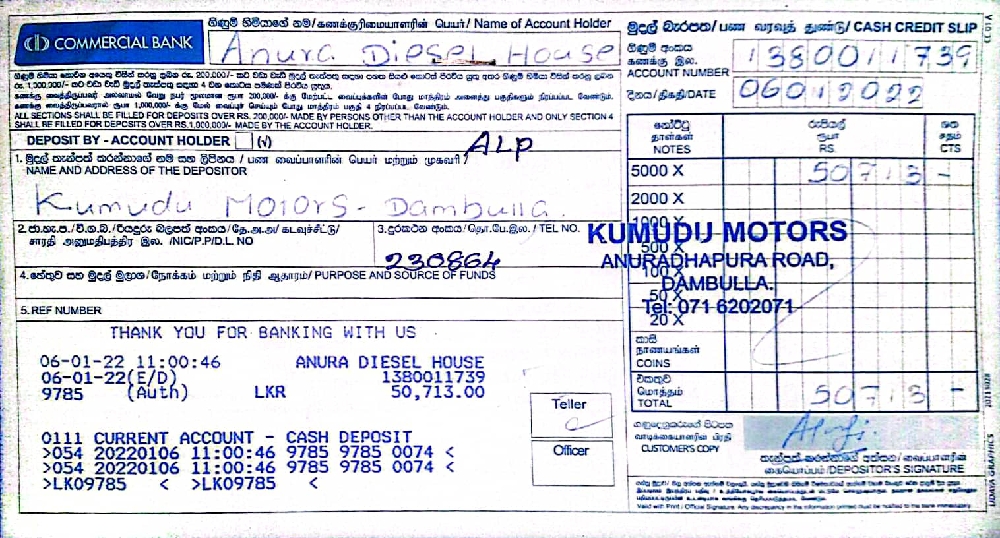 COMMERCIAL BANK
ගිණුම් හිමියාගේ නම/கணக்குரிமையாளரின் பெயர்/ Name of Account Holder
Anura Diesel House
මුදල් බැරපත/ பண வரவுத் துண்டு/ CASH CREDIT SLIP
ගිණුම් අංකය
கணக்கு இல.
ACCOUNT NUMBER
1380011739
දිනය/திகதி/DATE
06012022
ALL SECTIONS SHALL BE FILLED FOR DEPOSITS OVER RS. 200,000/- MADE BY PERSONS OTHER THAN THE ACCOUNT HOLDER AND ONLY SECTION 4
SHALL BE FILLED FOR DEPOSITS OVER RS.1,000,000/- MADE BY THE ACCOUNT HOLDER.
DEPOSIT BY - ACCOUNT HOLDER (√)
ALP
1. මුදල් තැන්පත් කරන්නාගේ නම සහ ලිපිනය / பண வைப்பாளரின் பெயர் மற்றும் முகவரி /
NAME AND ADDRESS OF THE DEPOSITOR
Kumudu Motors - Dambulla.
2. ජා.හැ.ප./වි.ග.බ./රියදුරු බලපත් අංකය/தே.அ.அ/ கடவுச்சீட்டு/
சாரதி அனுமதிபத்திர இல. /NIC/P.P/D.L. NO
3. දුරකථන අංකය/தொ.பே.இல. / TEL NO.
230864
4. හේතුව සහ මුදල් මූලාශ්‍ර/நோக்கம் மற்றும் நிதி ஆதாரம்/ PURPOSE AND SOURCE OF FUNDS
5. REF NUMBER
THANK YOU FOR BANKING WITH US
06-01-22 11:00:46 ANURA DIESEL HOUSE
06-01-22(E/D) 1380011739
9785 (Auth) LKR 50,713.00
0111 CURRENT ACCOUNT - CASH DEPOSIT
>054 20220106 11:00:46 9785 9785 0074 <
>054 20220106 11:00:46 9785 9785 0074 <
>LK09785 < >LK09785 <
Teller
Officer
නෝට්ටු
தாள்கள்
NOTES
රුපියල්
ரூபா
RS.
ශත
சதம்
CTS
5000 X 50713 -
2000 X
1000 X
500 X
100 X
50 X
20 X
KUMUDU MOTORS
ANURADHAPURA ROAD,
DAMBULLA.
Tel: 071 6202071
කාසි
நாணயங்கள்
COINS
එකතුව
மொத்தம்
TOTAL 50713 -
ගණුදෙනුකරුගේ පිටපත
வாடிக்கையாளரின் பிரதி
CUSTOMER'S COPY
තැන්පත් කරන්නාගේ අත්සන/வைப்பாளரின்
கையொப்பம்/DEPOSITOR'S SIGNATURE
Valid with Print / Official Signature. Any discrepancy in the information printed must be notified to the bank immediately.
UDAYA GRAPHICS